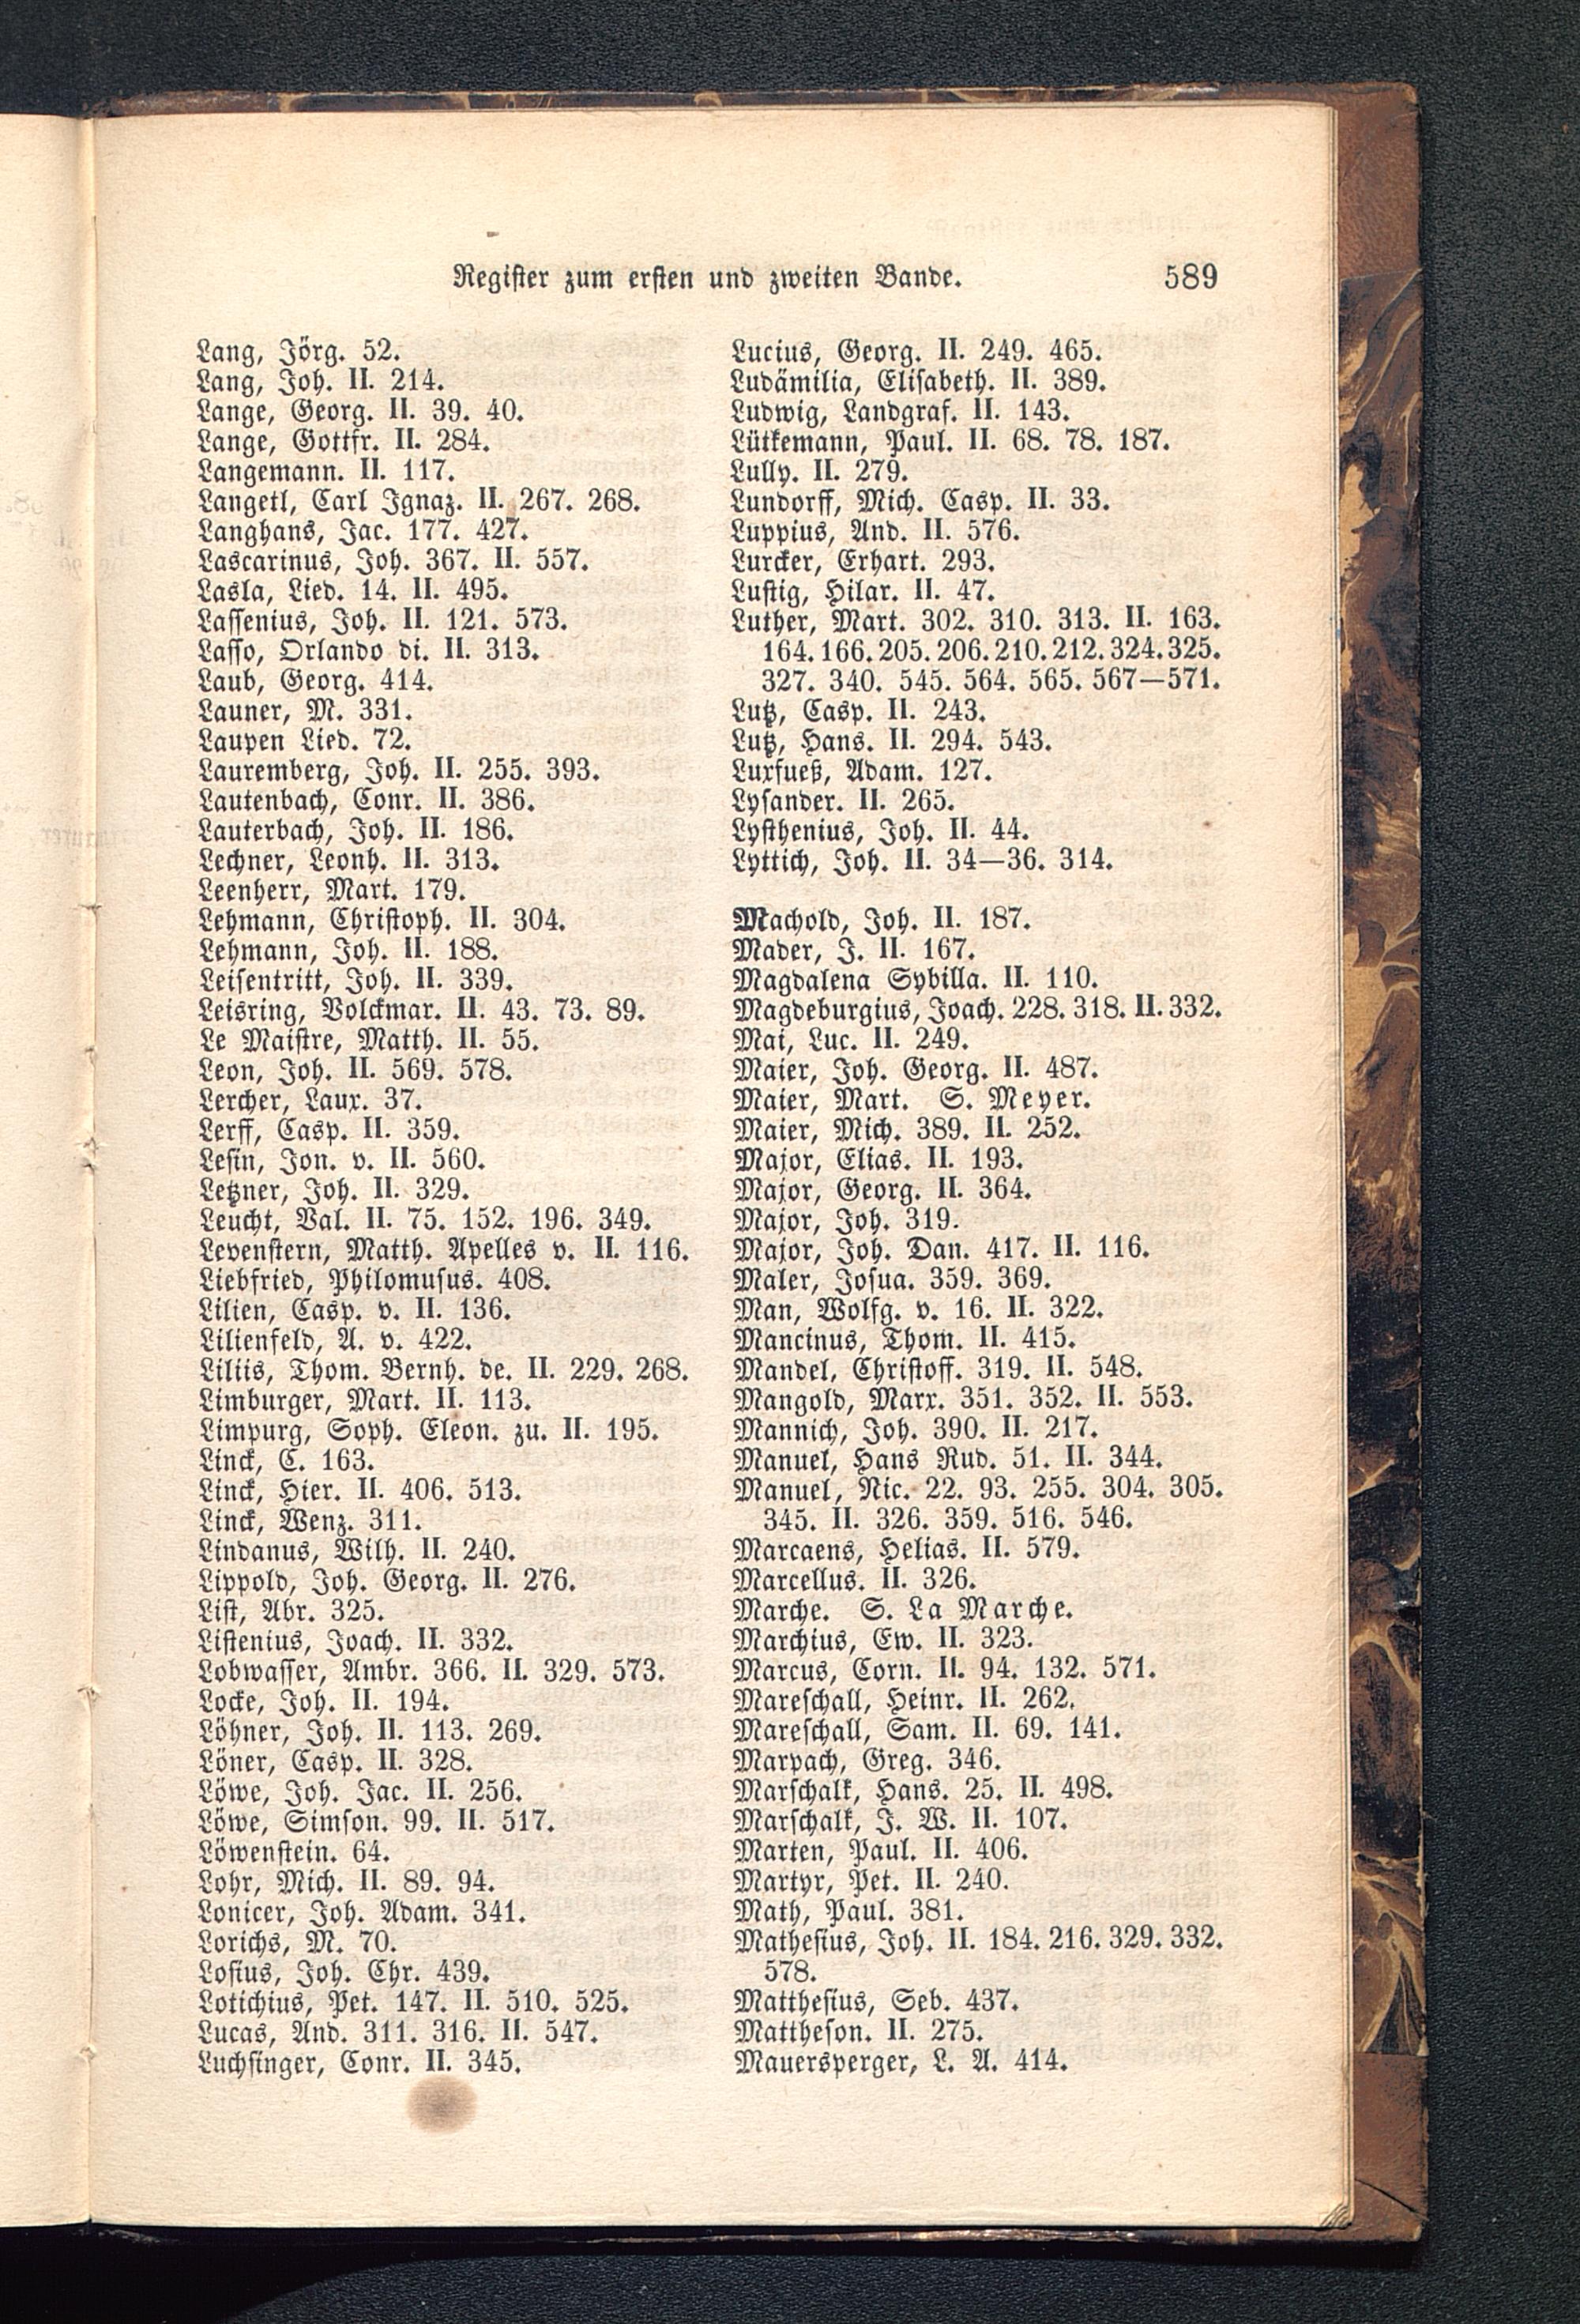 Register zum ersten und zweiten Bande. 589
Lang, Jörg. 52.
Lang, Joh. II. 214.
Lange, Georg. II. 39. 40.
Lange, Gottfr. II. 284.
Langemann. II. 117.
Langetl, Carl Ignaz. II. 267. 268.
Langhans, Jac. 177. 427.
Lascarinus, Joh. 367. II. 557.
Lasla, Lied. 14. II. 495.
Lassenius, Joh. II. 121. 573.
Lasso, Orlando di. II. 313.
Laub, Georg. 414.
Launer, M. 331.
Laupen Lied. 72.
Lauremberg, Joh. II. 255. 393.
Lautenbach, Conr. II. 386.
Lauterbach, Joh. II. 186.
Lechner, Leonh. II. 313.
Leenherr, Mart. 179.
Lehmann, Christoph. II. 304.
Lehmann, Joh. II. 188.
Leisentritt, Joh. II. 339.
Leisring, Volckmar. II. 43. 73. 89.
Le Maistre, Matth. II. 55.
Leon, Joh. II. 569. 578.
Lercher, Laux. 37.
Lerff, Casp. II. 359.
Lesin, Jon. v. II. 560.
Letzner, Joh. II. 329.
Leucht, Val. II. 75. 152. 196. 349.
Levenstern, Matth. Apelles v. II. 116.
Liebfried, Philomusus. 408.
Lilien, Casp. v. II. 136.
Lilienfeld, A. v. 422.
Liliis, Thom. Bernh. de. II. 229. 268.
Limburger, Mart. II. 113.
Limpurg, Soph. Eleon. zu. II. 195.
Linck, C. 163.
Linck, Hier. II. 406. 513.
Linck, Wenz. 311.
Lindanus, Wilh. II. 240.
Lippold, Joh. Georg. II. 276.
List, Abr. 325.
Listenius, Joach. II. 332.
Lobwasser, Ambr. 366. II. 329. 573.
Locke, Joh. II. 194.
Löhner, Joh. II. 113. 269.
Löner, Casp. II. 328.
Löwe, Joh. Jac. II. 256.
Löwe, Simson. 99. II. 517.
Löwenstein. 64.
Lohr, Mich. II. 89. 94.
Lonicer, Joh. Adam. 341.
Lorichs, M. 70.
Losius, Joh. Chr. 439.
Lotichius, Pet. 147. II. 510. 525.
Lucas, And. 311. 316. II. 547.
Luchsinger, Conr. II. 345.
Lucius, Georg. II. 249. 465.
Ludämilia, Elisabeth. II. 389.
Ludwig, Landgraf. II. 143.
Lütkemann, Paul. II. 68. 78. 187.
Lully. II. 279.
Lundorff, Mich. Casp. II. 33.
Luppius, And. II. 576.
Lurcker, Erhart. 293.
Lustig, Hilar. II. 47.
Luther, Mart. 302. 310. 313. II. 163.
164. 166. 205. 206. 210. 212. 324. 325.
327. 340. 545. 564. 565. 567—571.
Lutz, Casp. II. 243.
Lutz, Hans. II. 294. 543.
Luxfueß, Adam. 127.
Lysander. II. 265.
Lysthenius, Joh. II. 44.
Lyttich, Joh. II. 34—36. 314.
Machold, Joh. II. 187.
Mader, J. II. 167.
Magdalena Sybilla. II. 110.
Magdeburgius, Joach. 228. 318. II. 332.
Mai, Luc. II. 249.
Maier, Joh. Georg. II. 487.
Maier, Mart. S. Meyer.
Maier, Mich. 389. II. 252.
Major, Elias. II. 193.
Major, Georg. II. 364.
Major, Joh. 319.
Major, Joh. Dan. 417. II. 116.
Maler, Josua. 359. 369.
Man, Wolfg. v. 16. II. 322.
Mancinus, Thom. II. 415.
Mandel, Christoff. 319. II. 548.
Mangold, Marx. 351. 352. II. 553.
Mannich, Joh. 390. II. 217.
Manuel, Hans Rud. 51. II. 344.
Manuel, Nic. 22. 93. 255. 304. 305.
345. II. 326. 359. 516. 546.
Marcaens, Helias. II. 579.
Marcellus. II. 326.
Marche. S. La Marche.
Marchius, Ew. II. 323.
Marcus, Corn. II. 94. 132. 571.
Mareschall, Heinr. II. 262.
Mareschall, Sam. II. 69. 141.
Marpach, Greg. 346.
Marschalk, Hans. 25. II. 498.
Marschalk, J. W. II. 107.
Marten, Paul. II. 406.
Martyr, Pet. II. 240.
Math, Paul. 381.
Mathesius, Joh. II. 184. 216. 329. 332.
578.
Matthesius, Seb. 437.
Mattheson. II. 275.
Mauersperger, L. A. 414.